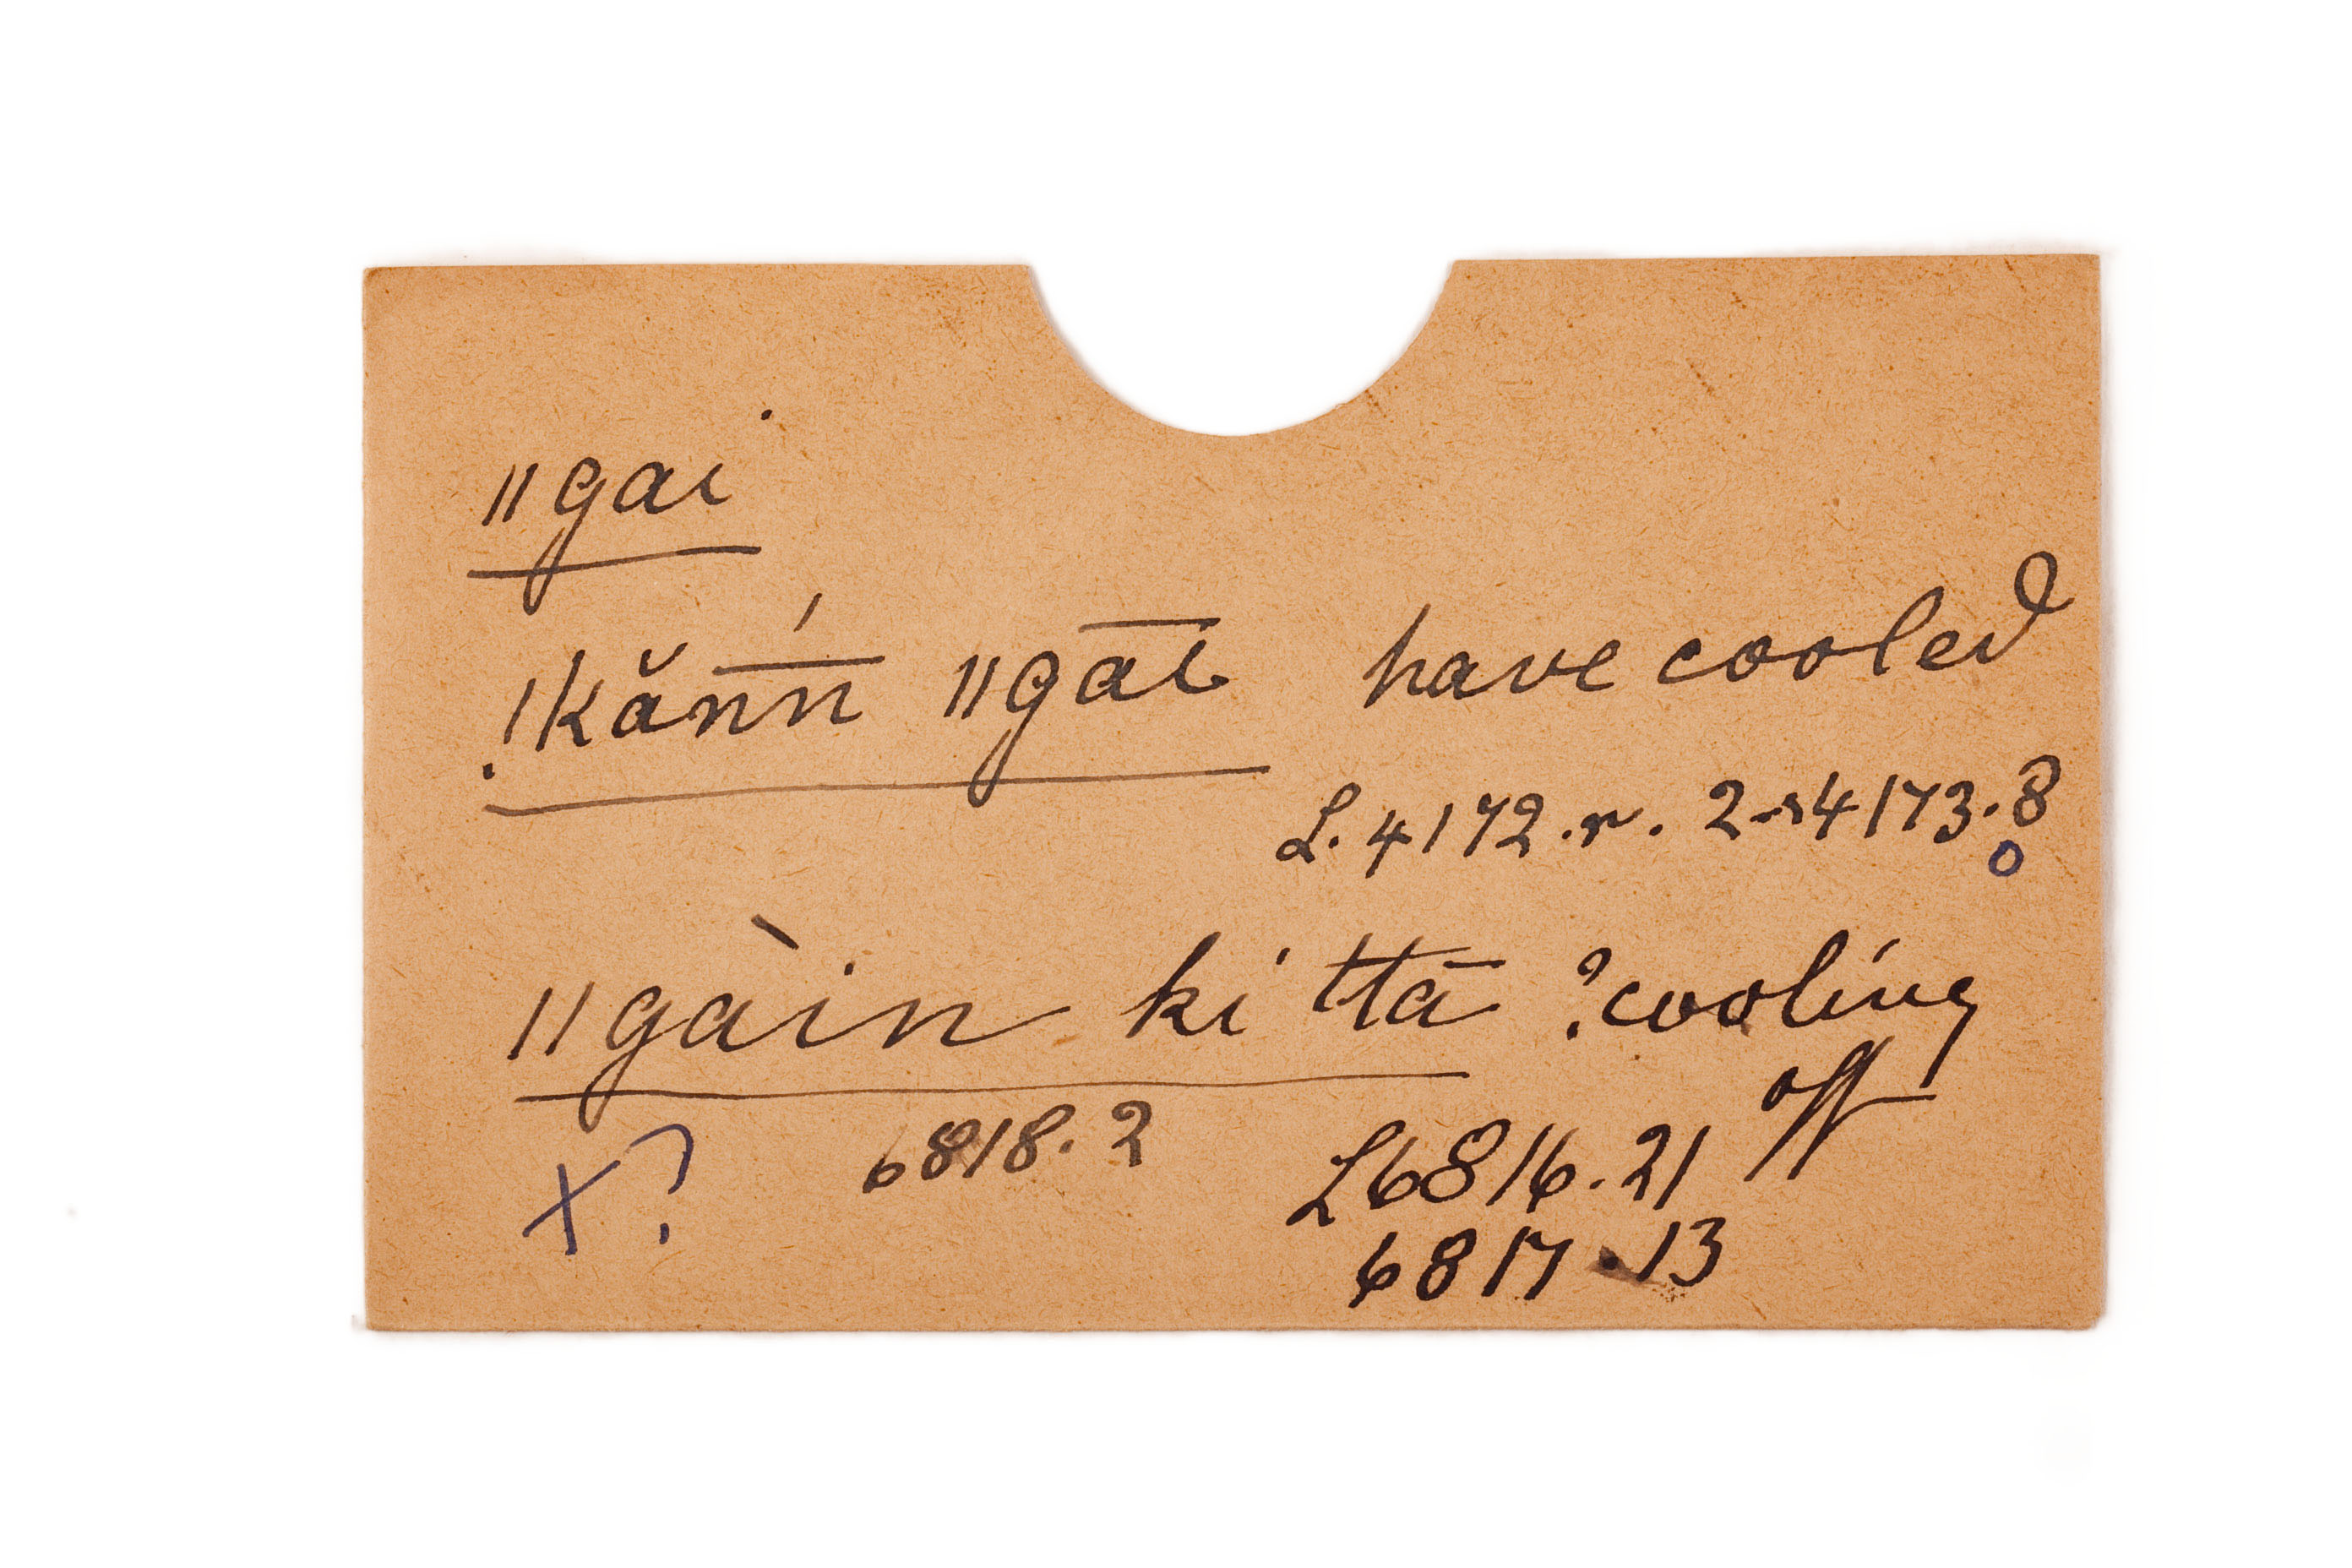 ǁgai
!kăn̄́n ǁgāī have cooled
L. 4172. r. 2 - r 4173. 8
o
ǁgàin ki ttā ? cooling
off
X ? 6818. 2 L 6816. 21
6817. 13